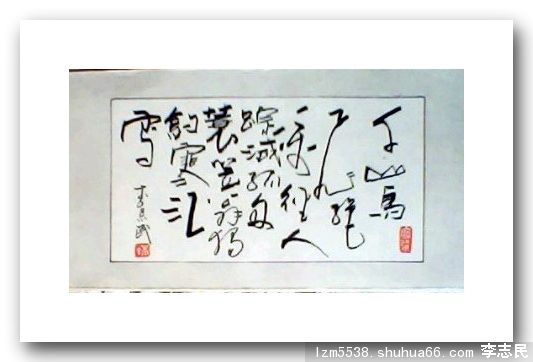 千山鳥
飛絕
萬徑人
踪滅孤舟
蓑笠翁獨
釣寒江
雪
李志民
lzm5538.shuhua66.com 李志民